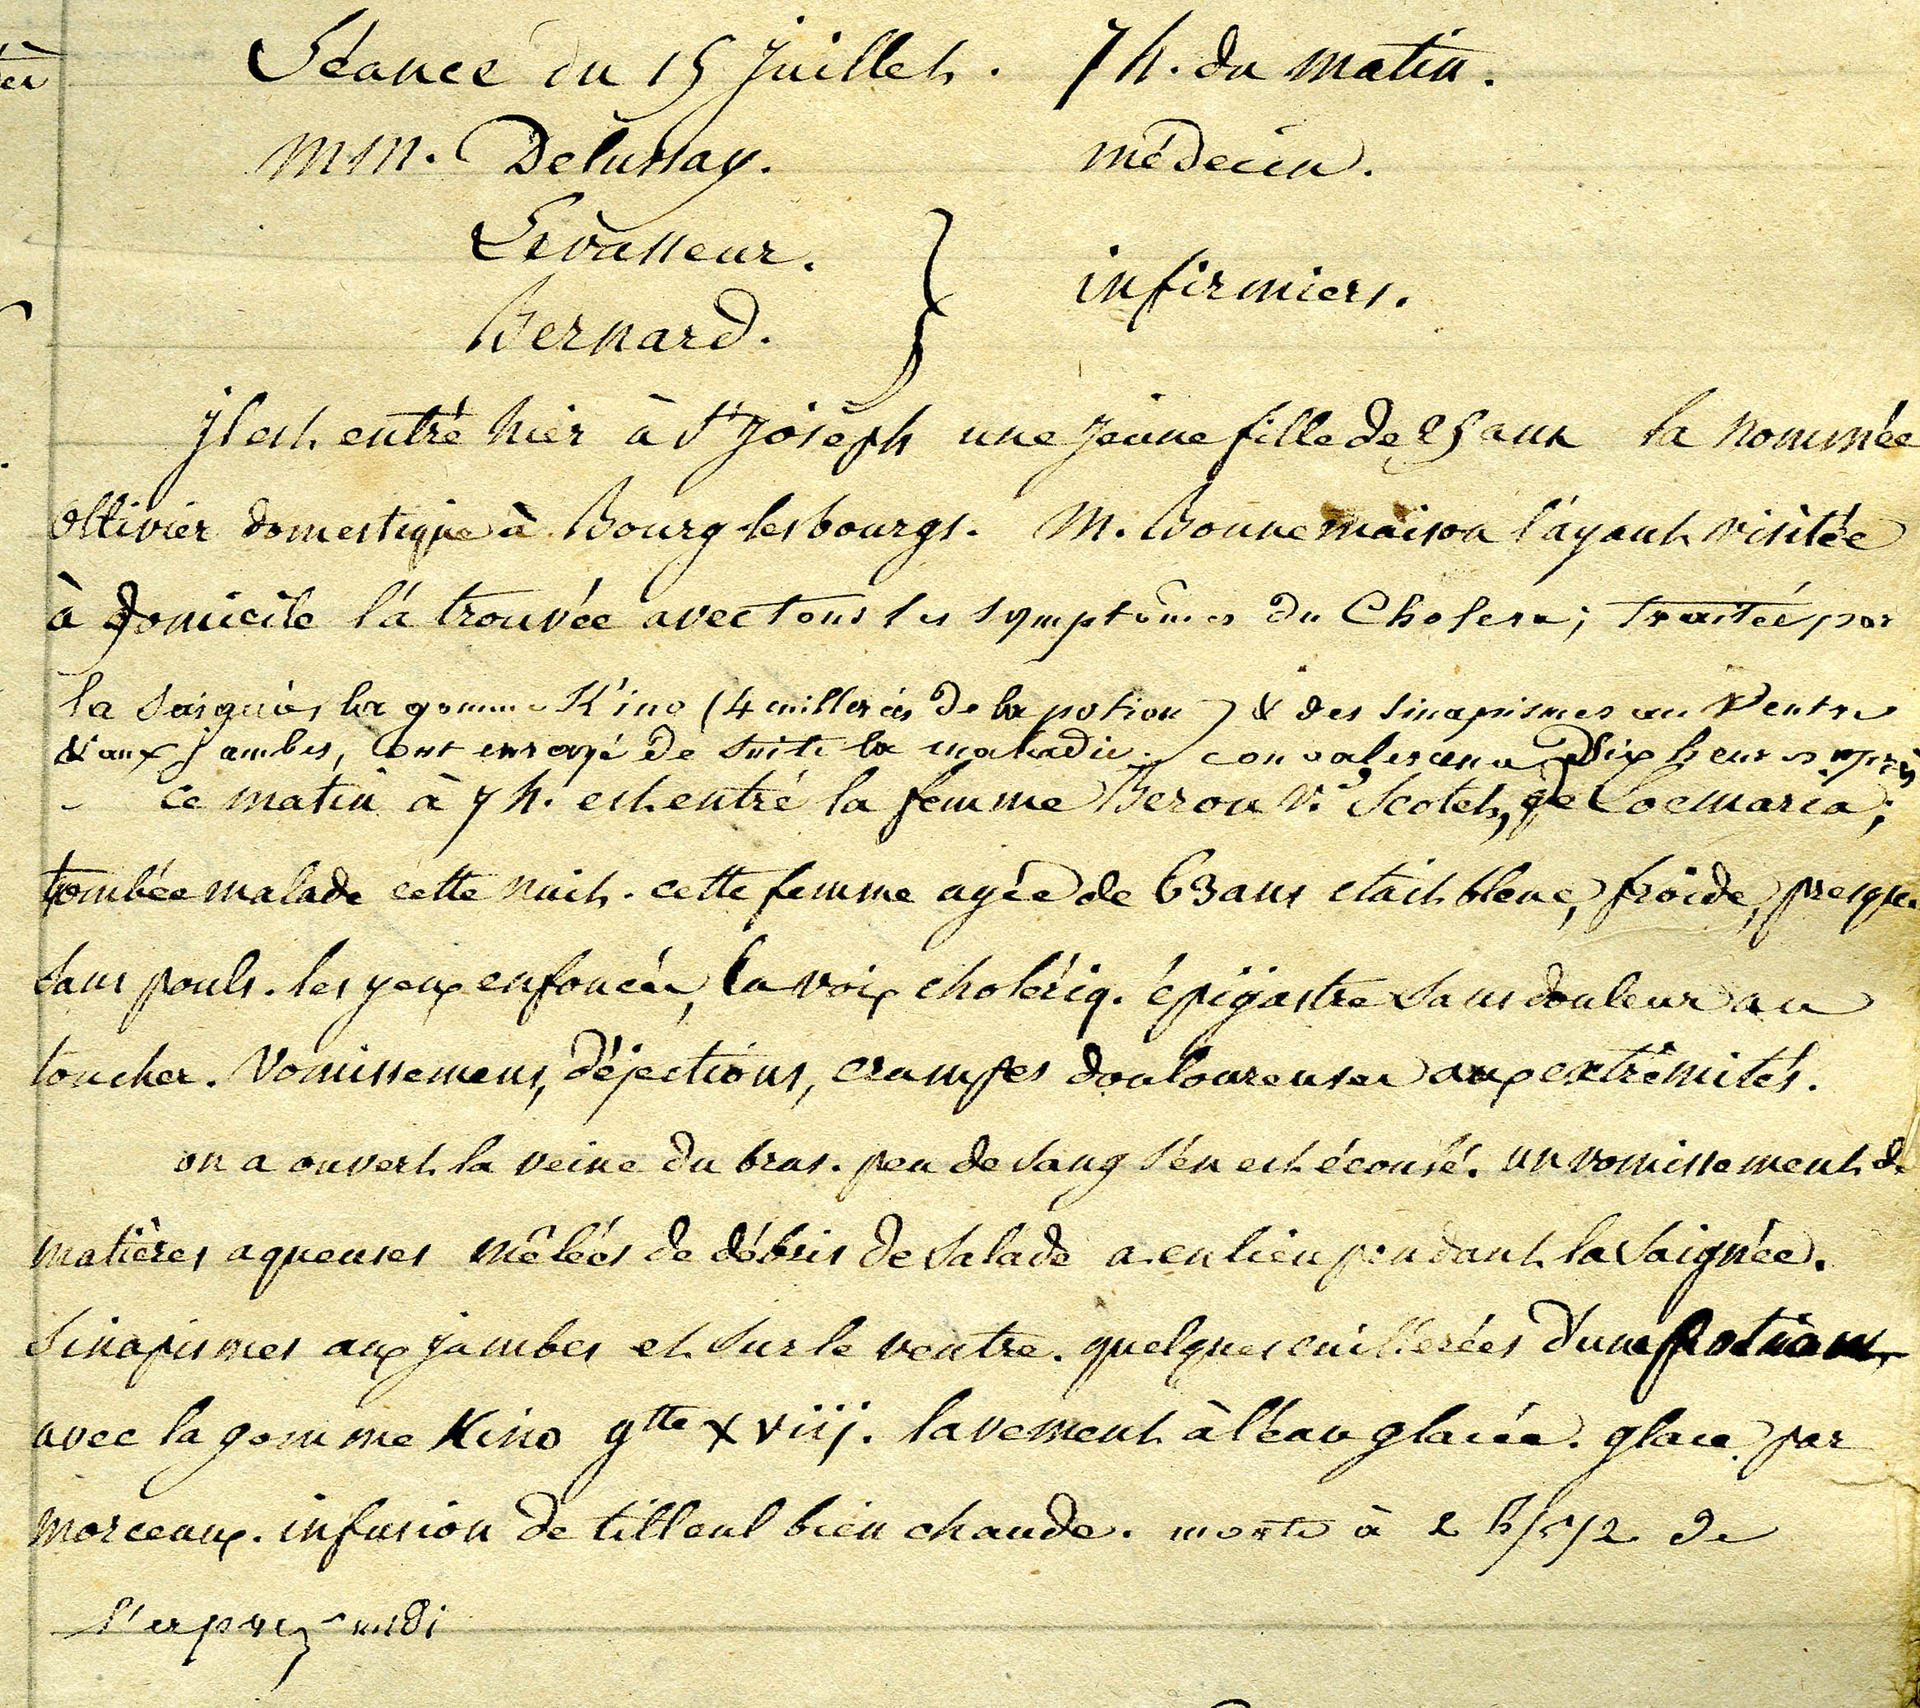 Séance du 15 Juillet. 7 h. du matin.
MM. Delussay. médecin.
Levasseur.
infirmiers.
Bernard.
Il est entré hier à St Joseph une jeune fille de 25 ans la nommée
Ollivier domestique à Bourg les bourgs. M. Bonnemaison l'ayant visitée
à domicile l'a trouvée avec tous les symptômes du Cholera; traitée par
la saignée, la gomme Kino (4 cuillerées de la potion) & des sinapismes au Ventre
& aux jambes, ont enrayé de suite la maladie. convalescence dix heures après
ce matin à 7 h. est entré la femme Beron Ve Scoteh, de Locmaria;
tombée malade cette nuit. cette femme agée de 63 ans était bleue, froide, presque
sans pouls. les yeux enfoncés, la voix cholériq. épigastre sans douleur au
toucher. Vomissemens, déjections, crampes douloureuses aux extrêmités.
on a ouvert la veine du bras. peu de sang s'en est écoulé. un vomissement de
matières aqueuses mêlées de débris de salade a eu lieu pendant la saignée.
Sinapismes aux jambes et sur le ventre. quelques cuillerées d'une potion
avec la gomme Kino gtte xviij. lavement à l'eau glacée. glace par
morceaux. infusion de tilleul bien chaude. morte à 2 h 1/2 de
l'après-midi